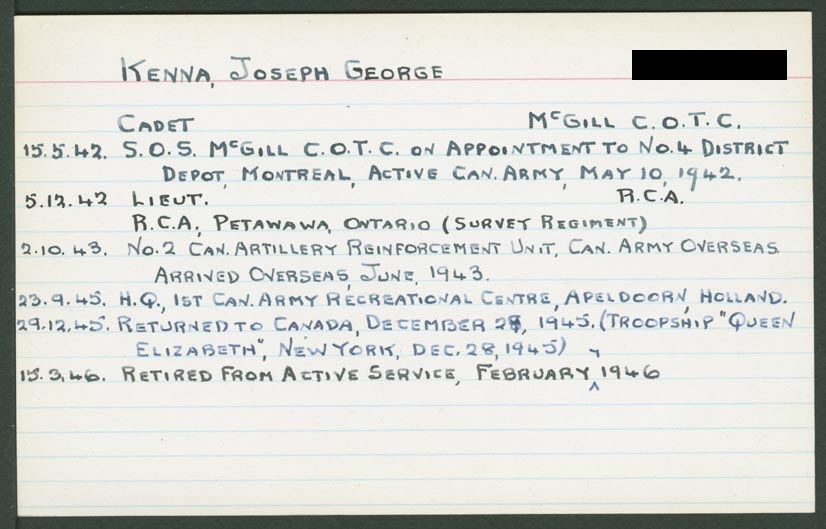 KENNA, JOSEPH GEORGE
CADET McGILL C.O.T.C.
15.5.42. S.O.S. McGILL C.O.T.C. ON APPOINTMENT TO NO.4 DISTRICT
DEPOT, MONTREAL, ACTIVE CAN. ARMY, MAY 10, 1942.
5.12.42 LIEUT. R.C.A.
R.C.A., PETAWAWA, ONTARIO (SURVEY REGIMENT)
2.10.43. NO.2 CAN. ARTILLERY REINFORCEMENT UNIT, CAN. ARMY OVERSEAS
ARRIVED OVERSEAS, JUNE, 1943.
23.9.45. H.Q., 1ST CAN. ARMY RECREATIONAL CENTRE, APELDOORN, HOLLAND.
29.12.45. RETURNED TO CANADA, DECEMBER 28, 1945. (TROOPSHIP "QUEEN
ELIZABETH", NEW YORK, DEC. 28, 1945)
15.3.46. RETIRED FROM ACTIVE SERVICE, FEBRUARY, 1946